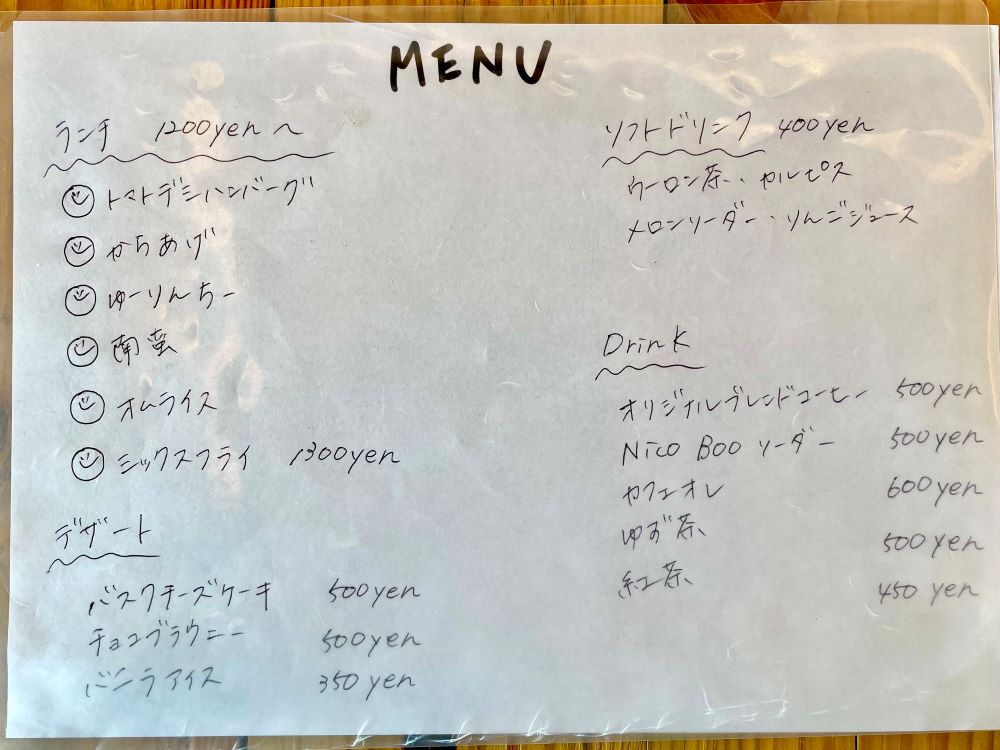 MENU
ランチ 1200yen～
トマトデミハンバーグ
からあげ
ゆーりんちー
南蛮
オムライス
ミックスフライ 1300yen
デザート
バスクチーズケーキ 500yen
チョコブラウニー 500yen
バニラアイス 350yen
ソフトドリンク 400yen
ウーロン茶・カルピス
メロンソーダー・りんごジュース
Drink
オリジナルブレンドコーヒー 500yen
Nico Boo ソーダー 500yen
カフェオレ 600yen
ゆず茶 500yen
紅茶 450yen